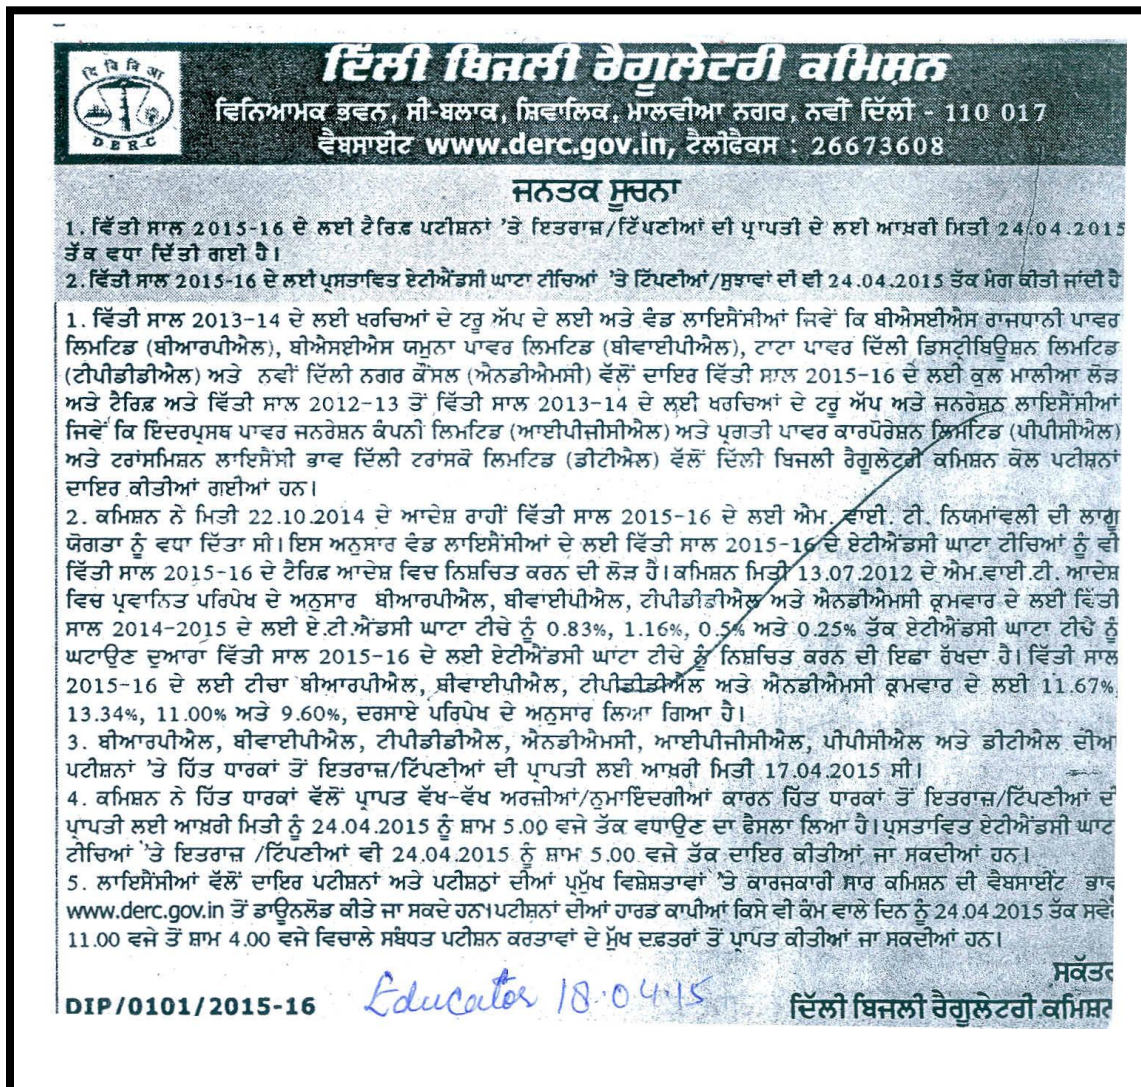 ਦਿ ਬਿ ਵਿ ਆ
DERC
ਦਿੱਲੀ ਬਿਜਲੀ ਰੈਗੂਲੇਟਰੀ ਕਮਿਸ਼ਨ
ਵਿਨਿਆਮਕ ਭਵਨ, ਸੀ-ਬਲਾਕ, ਸ਼ਿਵਾਲਿਕ, ਮਾਲਵੀਆ ਨਗਰ, ਨਵੀਂ ਦਿੱਲੀ - 110 017
ਵੈਬਸਾਈਟ www.derc.gov.in, ਟੈਲੀਫੈਕਸ : 26673608
ਜਨਤਕ ਸੂਚਨਾ
1. ਵਿੱਤੀ ਸਾਲ 2015-16 ਦੇ ਲਈ ਟੈਰਿਫ਼ ਪਟੀਸ਼ਨਾਂ 'ਤੇ ਇਤਰਾਜ਼/ਟਿੱਪਣੀਆਂ ਦੀ ਪ੍ਰਾਪਤੀ ਦੇ ਲਈ ਆਖ਼ਰੀ ਮਿਤੀ 24.04.2015
ਤੱਕ ਵਧਾ ਦਿੱਤੀ ਗਈ ਹੈ।
2. ਵਿੱਤੀ ਸਾਲ 2015-16 ਦੇ ਲਈ ਪ੍ਰਸਤਾਵਿਤ ਏਟੀਐਂਡਸੀ ਘਾਟਾ ਟੀਚਿਆਂ 'ਤੇ ਟਿੱਪਣੀਆਂ/ਸੁਝਾਵਾਂ ਦੀ ਵੀ 24.04.2015 ਤੱਕ ਮੰਗ ਕੀਤੀ ਜਾਂਦੀ ਹੈ
1. ਵਿੱਤੀ ਸਾਲ 2013-14 ਦੇ ਲਈ ਖਰਚਿਆਂ ਦੇ ਟਰੂ ਅੱਪ ਦੇ ਲਈ ਅਤੇ ਵੰਡ ਲਾਇਸੈਂਸੀਆਂ ਜਿਵੇਂ ਕਿ ਬੀਐਸਈਐਸ ਰਾਜਧਾਨੀ ਪਾਵਰ
ਲਿਮਟਿਡ (ਬੀਆਰਪੀਐਲ), ਬੀਐਸਈਐਸ ਯਮੁਨਾ ਪਾਵਰ ਲਿਮਟਿਡ (ਬੀਵਾਈਪੀਐਲ), ਟਾਟਾ ਪਾਵਰ ਦਿੱਲੀ ਡਿਸਟ੍ਰੀਬਿਊਸ਼ਨ ਲਿਮਟਿਡ
(ਟੀਪੀਡੀਡੀਐਲ) ਅਤੇ ਨਵੀਂ ਦਿੱਲੀ ਨਗਰ ਕੌਂਸਲ (ਐਨਡੀਐਮਸੀ) ਵੱਲੋਂ ਦਾਇਰ ਵਿੱਤੀ ਸਾਲ 2015-16 ਦੇ ਲਈ ਕੁਲ ਮਾਲੀਆ ਲੋੜ
ਅਤੇ ਟੈਰਿਫ਼ ਅਤੇ ਵਿੱਤੀ ਸਾਲ 2012-13 ਤੋਂ ਵਿੱਤੀ ਸਾਲ 2013-14 ਦੇ ਲਈ ਖਰਚਿਆਂ ਦੇ ਟਰੂ ਅੱਪ ਅਤੇ ਜਨਰੇਸ਼ਨ ਲਾਇਸੈਂਸੀਆਂ
ਜਿਵੇਂ ਕਿ ਇੰਦਰਪ੍ਰਸਥ ਪਾਵਰ ਜਨਰੇਸ਼ਨ ਕੰਪਨੀ ਲਿਮਟਿਡ (ਆਈਪੀਜੀਸੀਐਲ) ਅਤੇ ਪ੍ਰਗਤੀ ਪਾਵਰ ਕਾਰਪੋਰੇਸ਼ਨ ਲਿਮਟਿਡ (ਪੀਪੀਸੀਐਲ)
ਅਤੇ ਟਰਾਂਸਮਿਸ਼ਨ ਲਾਇਸੈਂਸੀ ਭਾਵ ਦਿੱਲੀ ਟਰਾਂਸਕੋ ਲਿਮਟਿਡ (ਡੀਟੀਐਲ) ਵੱਲੋਂ ਦਿੱਲੀ ਬਿਜਲੀ ਰੈਗੂਲੇਟਰੀ ਕਮਿਸ਼ਨ ਕੋਲ ਪਟੀਸ਼ਨਾਂ
ਦਾਇਰ ਕੀਤੀਆਂ ਗਈਆਂ ਹਨ।
2. ਕਮਿਸ਼ਨ ਨੇ ਮਿਤੀ 22.10.2014 ਦੇ ਆਦੇਸ਼ ਰਾਹੀਂ ਵਿੱਤੀ ਸਾਲ 2015-16 ਦੇ ਲਈ ਐਮ. ਵਾਈ. ਟੀ. ਨਿਯਮਾਂਵਲੀ ਦੀ ਲਾਗੂ
ਯੋਗਤਾ ਨੂੰ ਵਧਾ ਦਿੱਤਾ ਸੀ। ਇਸ ਅਨੁਸਾਰ ਵੰਡ ਲਾਇਸੈਂਸੀਆਂ ਦੇ ਲਈ ਵਿੱਤੀ ਸਾਲ 2015-16 ਦੇ ਏਟੀਐਂਡਸੀ ਘਾਟਾ ਟੀਚਿਆਂ ਨੂੰ ਵੀ
ਵਿੱਤੀ ਸਾਲ 2015-16 ਦੇ ਟੈਰਿਫ਼ ਆਦੇਸ਼ ਵਿਚ ਨਿਸ਼ਚਿਤ ਕਰਨ ਦੀ ਲੋੜ ਹੈ। ਕਮਿਸ਼ਨ ਮਿਤੀ 13.07.2012 ਦੇ ਐਮ.ਵਾਈ.ਟੀ. ਆਦੇਸ਼
ਵਿਚ ਪ੍ਰਵਾਨਿਤ ਪਰਿਪੇਖ ਦੇ ਅਨੁਸਾਰ ਬੀਆਰਪੀਐਲ, ਬੀਵਾਈਪੀਐਲ, ਟੀਪੀਡੀਡੀਐਲ ਅਤੇ ਐਨਡੀਐਮਸੀ ਕ੍ਰਮਵਾਰ ਦੇ ਲਈ ਵਿੱਤੀ
ਸਾਲ 2014-2015 ਦੇ ਲਈ ਏ.ਟੀ.ਐਂਡਸੀ ਘਾਟਾ ਟੀਚੇ ਨੂੰ 0.83%, 1.16%, 0.5% ਅਤੇ 0.25% ਤੱਕ ਏਟੀਐਂਡਸੀ ਘਾਟਾ ਟੀਚੇ ਨੂੰ
ਘਟਾਉਣ ਦੁਆਰਾ ਵਿੱਤੀ ਸਾਲ 2015-16 ਦੇ ਲਈ ਏਟੀਐਂਡਸੀ ਘਾਟਾ ਟੀਚੇ ਨੂੰ ਨਿਸ਼ਚਿਤ ਕਰਨ ਦੀ ਇਛਾ ਰੱਖਦਾ ਹੈ। ਵਿੱਤੀ ਸਾਲ
2015-16 ਦੇ ਲਈ ਟੀਚਾ ਬੀਆਰਪੀਐਲ, ਬੀਵਾਈਪੀਐਲ, ਟੀਪੀਡੀਡੀਐਲ ਅਤੇ ਐਨਡੀਐਮਸੀ ਕ੍ਰਮਵਾਰ ਦੇ ਲਈ 11.67%,
13.34%, 11.00% ਅਤੇ 9.60%, ਦਰਸਾਏ ਪਰਿਪੇਖ ਦੇ ਅਨੁਸਾਰ ਲਿਆ ਗਿਆ ਹੈ।
3. ਬੀਆਰਪੀਐਲ, ਬੀਵਾਈਪੀਐਲ, ਟੀਪੀਡੀਡੀਐਲ, ਐਨਡੀਐਮਸੀ, ਆਈਪੀਜੀਸੀਐਲ, ਪੀਪੀਸੀਐਲ ਅਤੇ ਡੀਟੀਐਲ ਦੀਆ
ਪਟੀਸ਼ਨਾਂ 'ਤੇ ਹਿੱਤ ਧਾਰਕਾਂ ਤੋਂ ਇਤਰਾਜ਼/ਟਿੱਪਣੀਆਂ ਦੀ ਪ੍ਰਾਪਤੀ ਲਈ ਆਖ਼ਰੀ ਮਿਤੀ 17.04.2015 ਸੀ।
4. ਕਮਿਸ਼ਨ ਨੇ ਹਿੱਤ ਧਾਰਕਾਂ ਵੱਲੋਂ ਪ੍ਰਾਪਤ ਵੱਖ-ਵੱਖ ਅਰਜ਼ੀਆਂ/ਨੁਮਾਇੰਦਗੀਆਂ ਕਾਰਨ ਹਿੱਤ ਧਾਰਕਾਂ ਤੋਂ ਇਤਰਾਜ਼/ਟਿੱਪਣੀਆਂ ਦੀ
ਪ੍ਰਾਪਤੀ ਲਈ ਆਖ਼ਰੀ ਮਿਤੀ ਨੂੰ 24.04.2015 ਨੂੰ ਸ਼ਾਮ 5.00 ਵਜੇ ਤੱਕ ਵਧਾਉਣ ਦਾ ਫੈਸਲਾ ਲਿਆ ਹੈ। ਪ੍ਰਸਤਾਵਿਤ ਏਟੀਐਂਡਸੀ ਘਾਟ
ਟੀਚਿਆਂ 'ਤੇ ਇਤਰਾਜ਼ /ਟਿੱਪਣੀਆਂ ਵੀ 24.04.2015 ਨੂੰ ਸ਼ਾਮ 5.00 ਵਜੇ ਤੱਕ ਦਾਇਰ ਕੀਤੀਆਂ ਜਾ ਸਕਦੀਆਂ ਹਨ।
5. ਲਾਇਸੈਂਸੀਆਂ ਵੱਲੋਂ ਦਾਇਰ ਪਟੀਸ਼ਨਾਂ ਅਤੇ ਪਟੀਸ਼ਨਾਂ ਦੀਆਂ ਪ੍ਰਮੁੱਖ ਵਿਸ਼ੇਸ਼ਤਾਵਾਂ 'ਤੇ ਕਾਰਜਕਾਰੀ ਸਾਰ ਕਮਿਸ਼ਨ ਦੀ ਵੈਬਸਾਈਟ ਭਾਵ
www.derc.gov.in ਤੋਂ ਡਾਊਨਲੋਡ ਕੀਤੇ ਜਾ ਸਕਦੇ ਹਨ। ਪਟੀਸ਼ਨਾਂ ਦੀਆਂ ਹਾਰਡ ਕਾਪੀਆਂ ਕਿਸੇ ਵੀ ਕੰਮ ਵਾਲੇ ਦਿਨ ਨੂੰ 24.04.2015 ਤੱਕ ਸਵੇਰੇ
11.00 ਵਜੇ ਤੋਂ ਸ਼ਾਮ 4.00 ਵਜੇ ਵਿਚਾਲੇ ਸਬੰਧਤ ਪਟੀਸ਼ਨ ਕਰਤਾਵਾਂ ਦੇ ਮੁੱਖ ਦਫ਼ਤਰਾਂ ਤੋਂ ਪ੍ਰਾਪਤ ਕੀਤੀਆਂ ਜਾ ਸਕਦੀਆਂ ਹਨ।
ਸਕੱਤਰ
DIP/0101/2015-16 Educator 18.04.15 ਦਿੱਲੀ ਬਿਜਲੀ ਰੈਗੂਲੇਟਰੀ ਕਮਿਸ਼ਨ